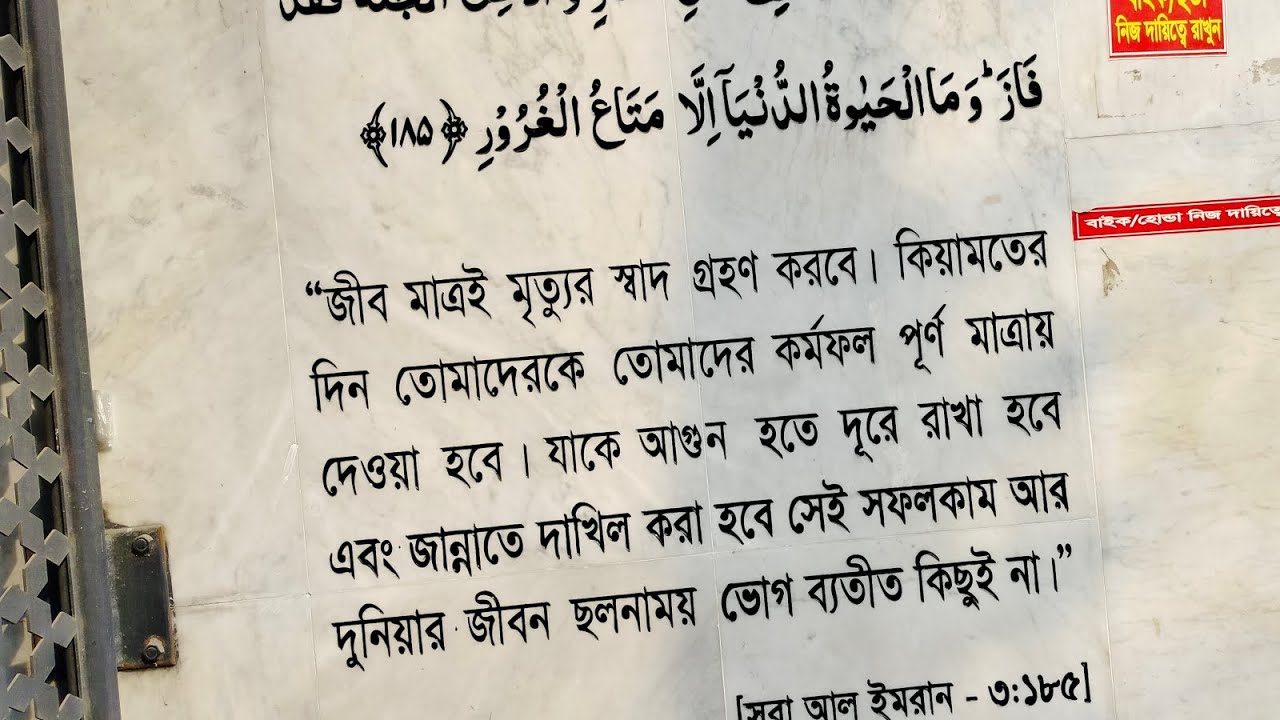 فَازَ ؕ وَ مَا الْحَيٰوةُ الدُّنْيَاۤ اِلَّا مَتَاعُ الْغُرُوْرِ ﴿۱۸۵﴾
“জীব মাত্রই মৃত্যুর স্বাদ গ্রহণ করবে। কিয়ামতের
দিন তোমাদেরকে তোমাদের কর্মফল পূর্ণ মাত্রায়
দেওয়া হবে। যাকে আগুন হতে দূরে রাখা হবে
এবং জান্নাতে দাখিল করা হবে সেই সফলকাম আর
দুনিয়ার জীবন ছলনাময় ভোগ ব্যতীত কিছুই না।”
[সূরা আল ইমরান - ৩:১৮৫]
নিজ দায়িত্বে রাখুন
বাইক/হোন্ডা নিজ দায়িত্বে